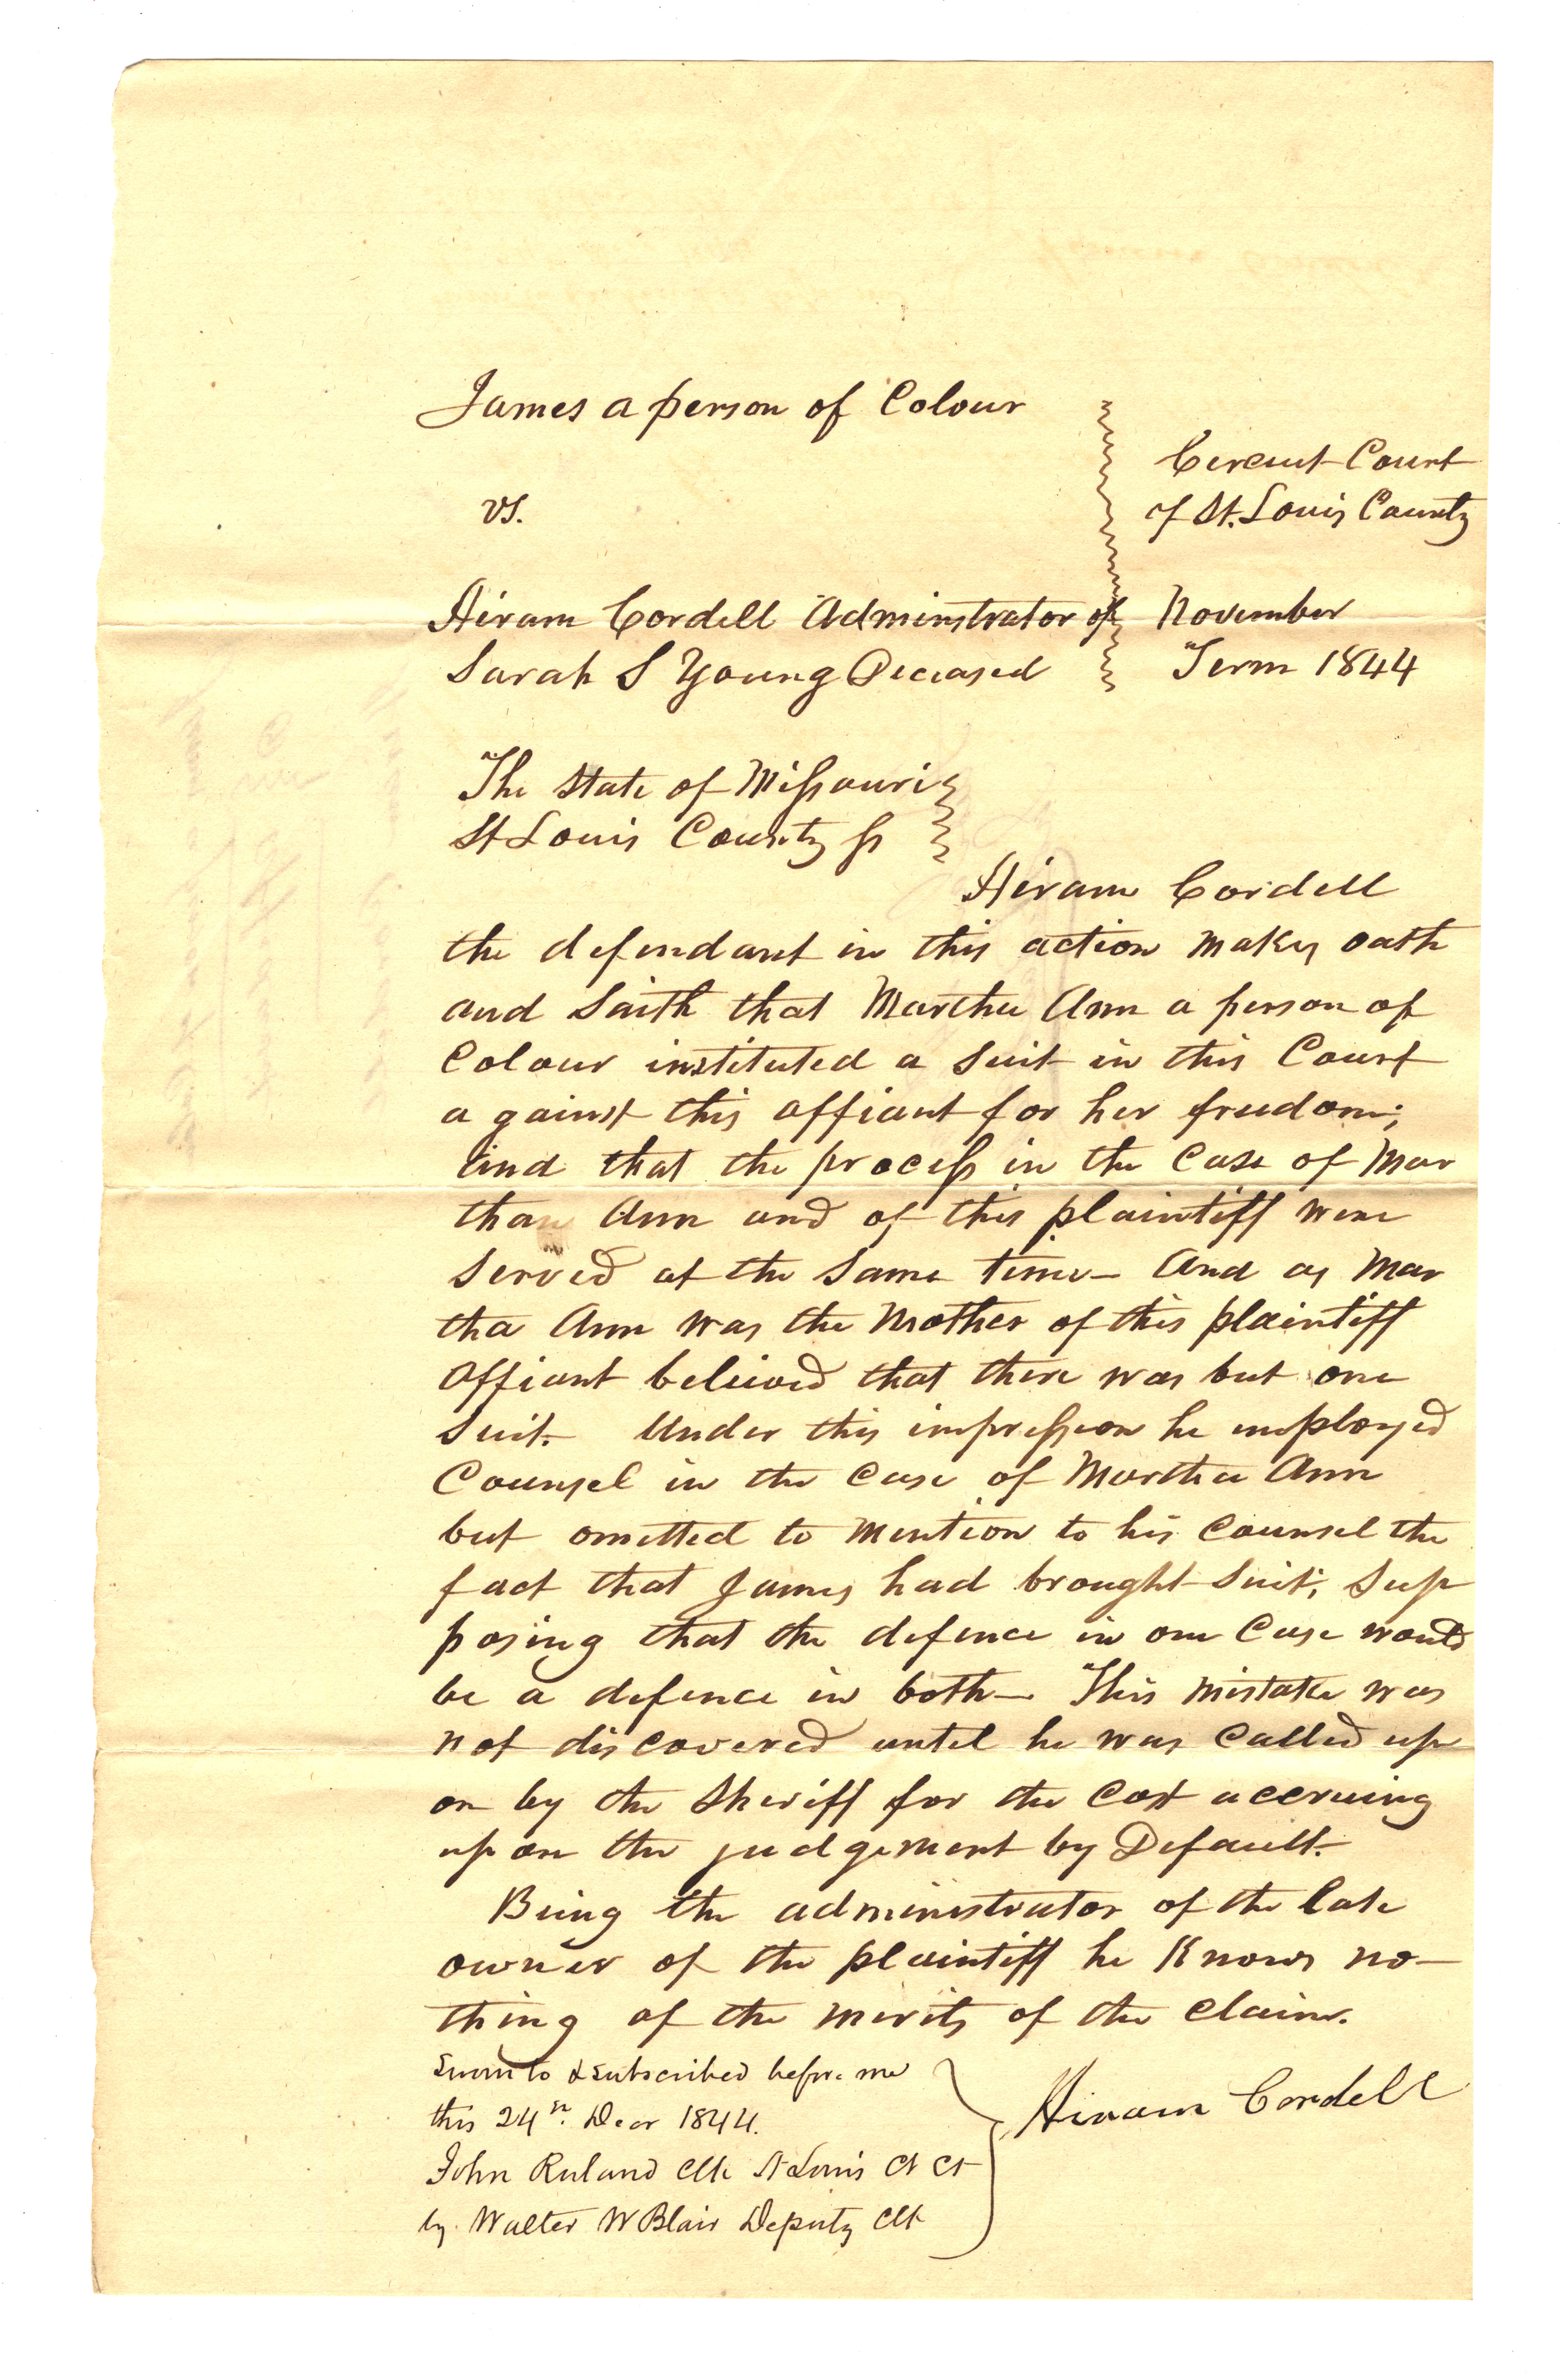 James a person of Colour
vs.
Circuit Court
of St. Louis County
Hiram Cordell Adminstrator of
Sarah S Young Deceased
November
Term 1844
The State of Missouri
St Louis County ss
Hiram Cordell
the defendant in this action makes oath
and Saith that Martha Ann a person of
Colour instituted a Suit in this Court
against this affiant for her freedom;
and that the process in the Case of Mar
tha Ann and of this plaintiff were
Served at the Same time – And as Mar
tha Ann was the Mother of this plaintiff
Affiant believed that there was but one
Suit. Under this impression he employed
Counsel in the Case of Martha Ann
but omitted to Mention to his Counsel the
fact that James had brought Suit; Sup
posing that the defence in one Case would
be a defence in both – This Mistake was
not discovered until he was Called up
on by the Sheriff for the Cost accruing
upon the judgement by Default.
Being the administrator of the late
owner of the plaintiff he Knows no–
thing of the merits of the Claim.
Sworn to & subscribed before me
this 24th. Decr 1844.
John Ruland Clk St Louis Ct Ct
by Walter W Blair Deputy Clk
Hiram Cordell